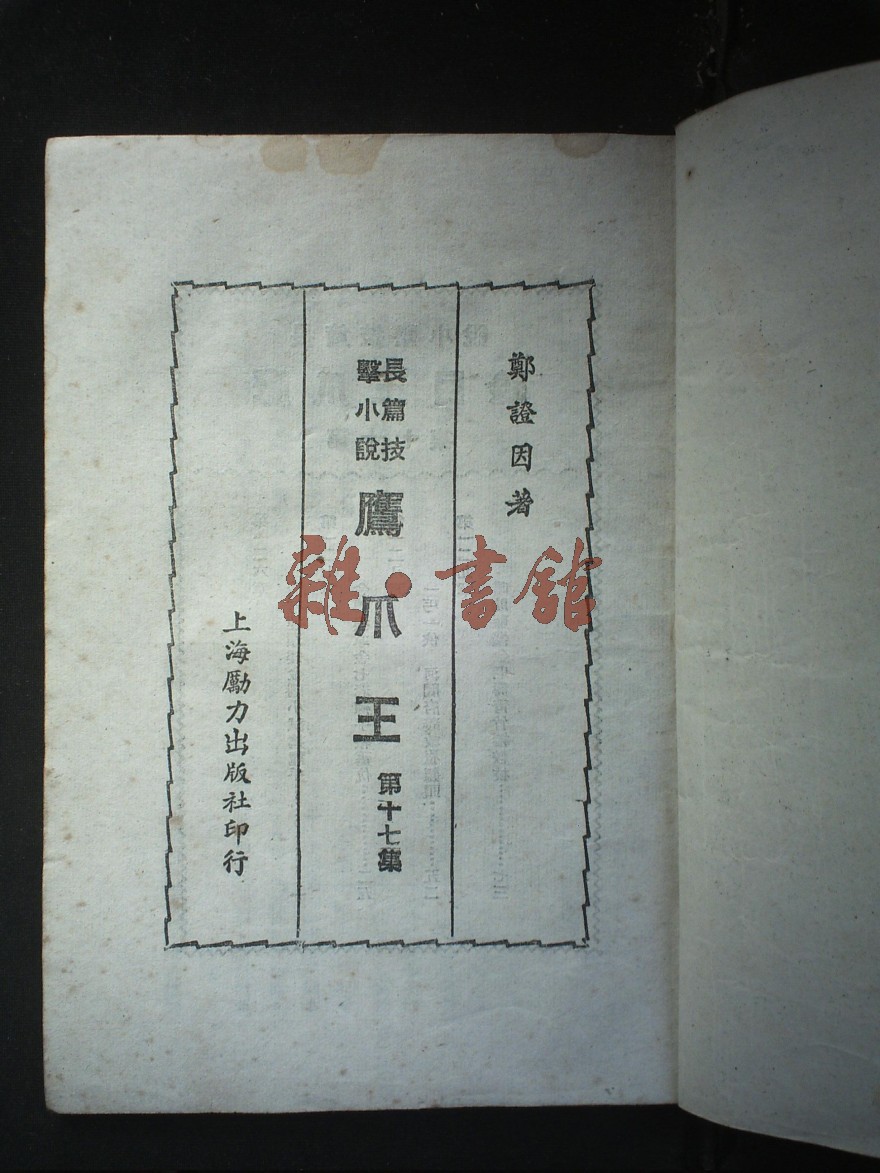 鄭證因著
長篇技
擊小說
鷹爪王
第十七集
上海勵力出版社印行
雜·書館